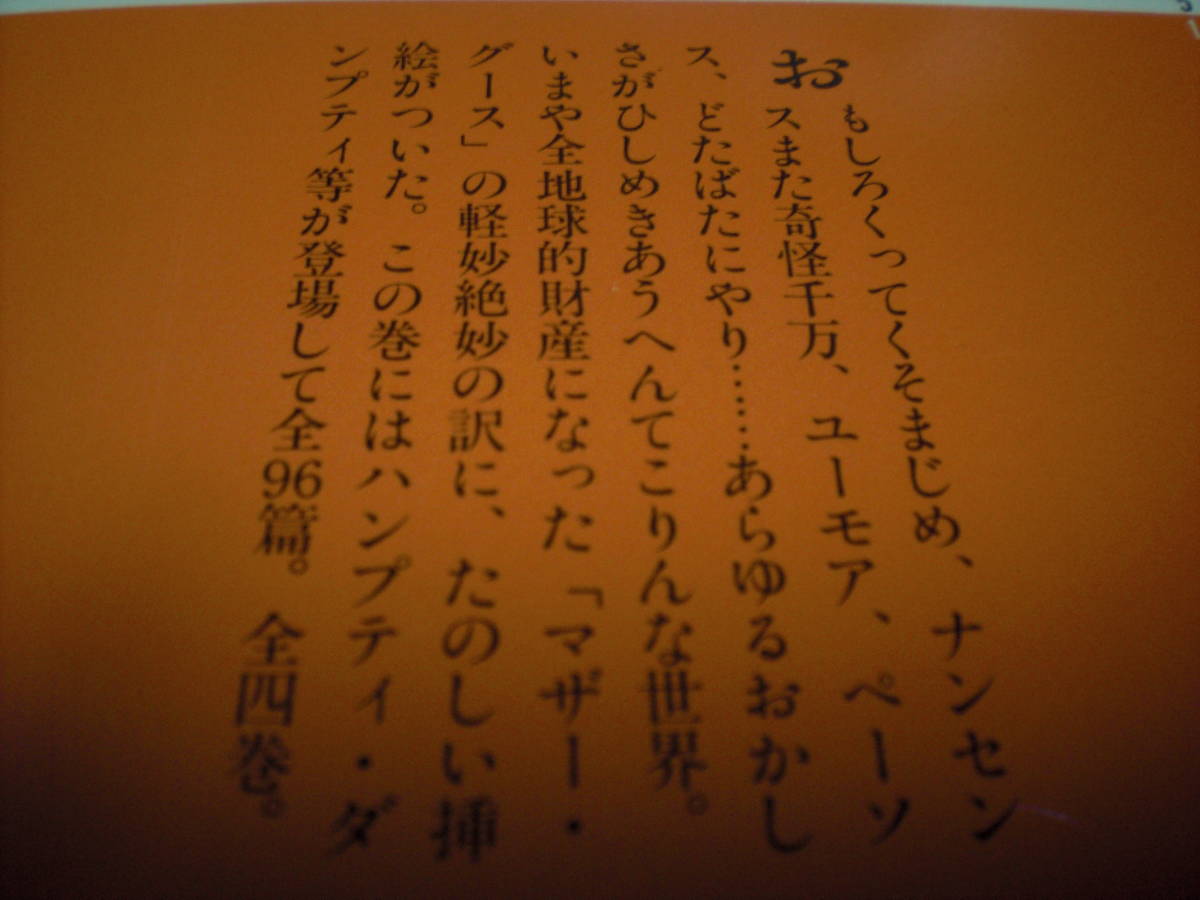 おもしろくってくそまじめ、ナンセン
スまた奇怪千万、ユーモア、ペーソ
ス、どたばたにやり……あらゆるおかし
さがひしめきあうへんてこりんな世界。
いまや全地球的財産になった「マザー・
グース」の軽妙絶妙の訳に、たのしい挿
絵がついた。この巻にはハンプティ・ダ
ンプティ等が登場して全96篇。全四巻。